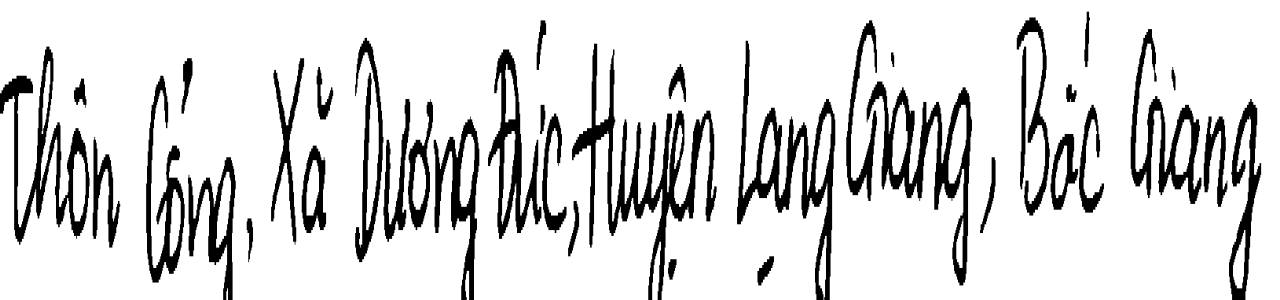 Thôn Cống, Xã Dương Đức, Huyện Lạng Giang, Bắc Giang